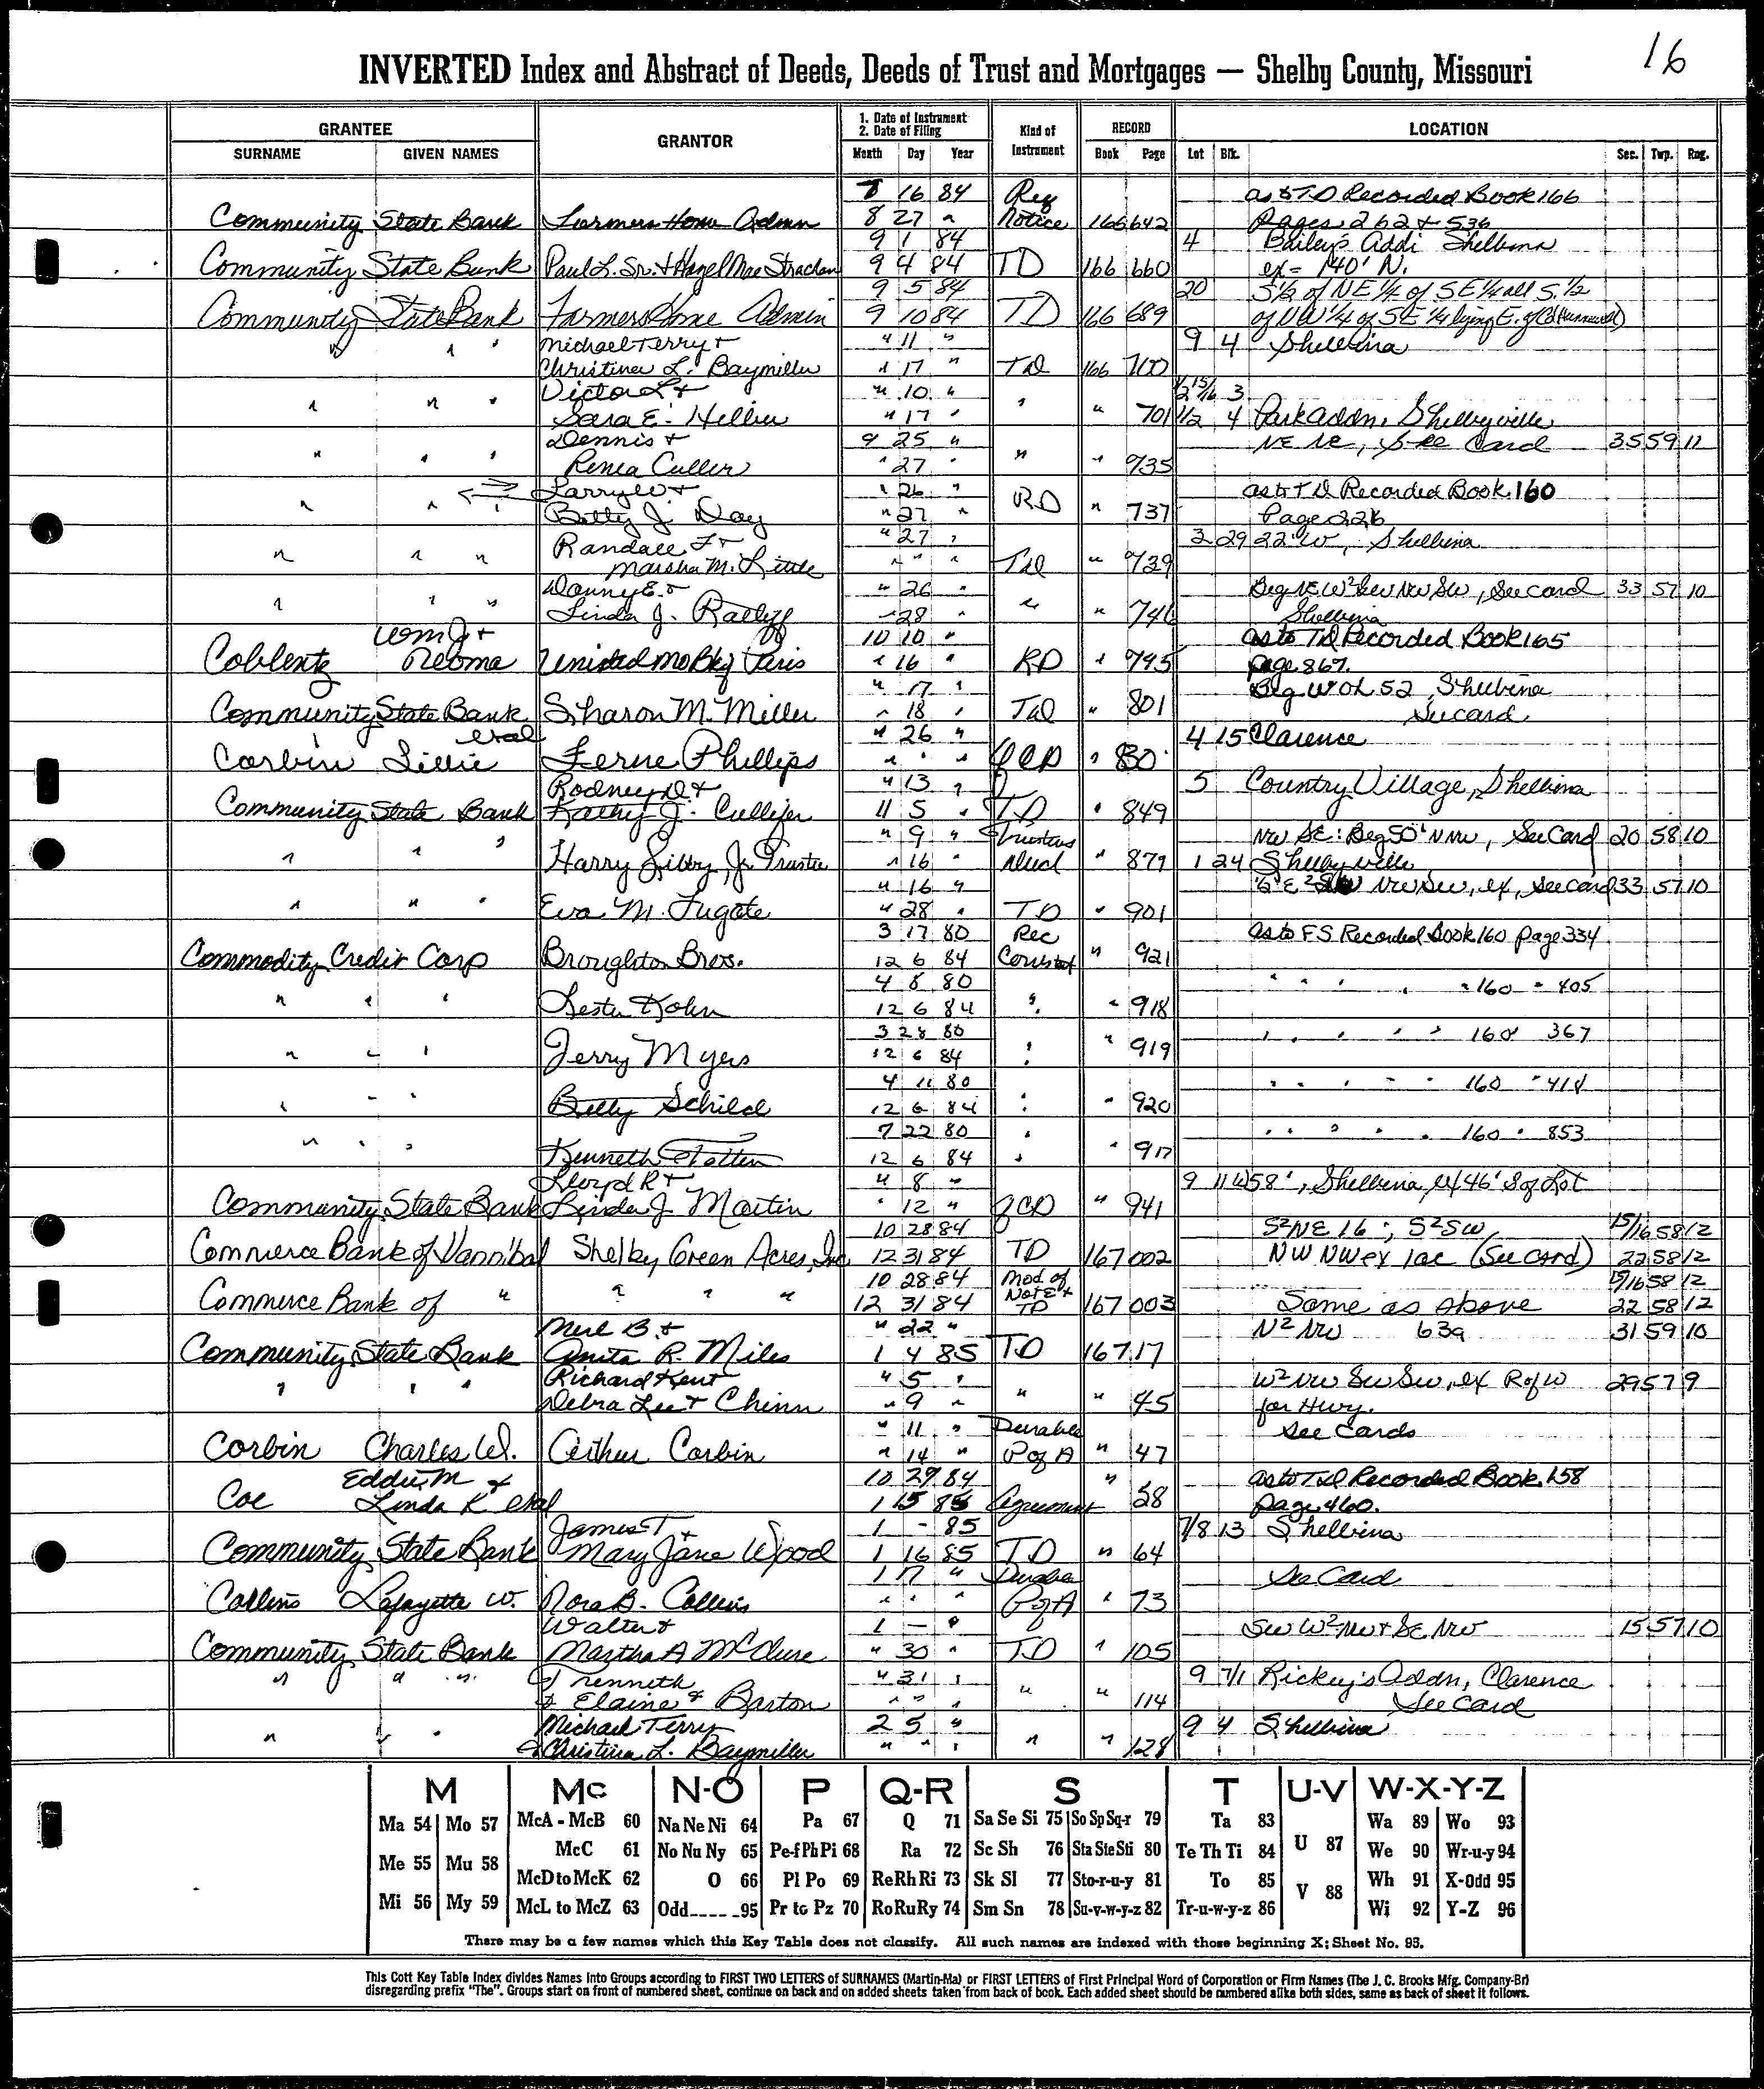 16
INVERTED Index and Abstract of Deeds, Deeds of Trust and Mortgages — Shelby County, Missouri
GRANTEE GRANTOR 1. Date of Instrument 2. Date of Filing Kind of Instrument RECORD LOCATION
SURNAME GIVEN NAMES Month Day Year Book Page Lot Blk. Sec. Twp. Rng.
8 16 84 Req as to T.D Recorded Book 166
Community State Bank Farmers Home Admn 8 27 " Notice 166 642 Pages 262 + 536
9 1 84 4 Bailey's Addi Shelbina
Community State Bank Paul L. Sr. + Hazel Mae Strachan 9 4 84 TD 166 660 ex = 140' N.
9 5 84 20 S 1/2 of NE 1/4 of SE 1/4 all S. 1/2
Community State Bank Farmers Home Admin 9 10 84 TD 166 689 of NW 1/4 of SE 1/4 lying E. of
Michael Terry + " 11 " 9 4 Shelbina
" " " Christina L. Baymiller " 17 " TD 166 700
Victor L + " 10 " 1/2 15/16 3
" " " Sara E. Hellier " 17 " " " 701 1/2 4 Park Addn, Shelbyville
Dennis + 9 25 " NE NE, See Card 35 59 11
" " " Renea Culler " 27 " " " 735
Larry W + " 26 " as to T D Recorded Book 160
" " " Betty J. Day " 27 " RD " 737 Page 226
Randall F + " 27 " 3 29 22' W, Shelbina
" " " Marsha M. Little " " " TD " 739
Danny E. + " 26 " Beg NE W² NW SW, See card 33 57 10
" " " Linda J. Ratliff " 28 " " " 746 Shelbina
Wm J + 10 10 " as to TD Recorded Book 165
Coblentz Reloma United Mo Bk of Paris " 16 " RD " 795 page 867.
" 17 " Beg W OL 52, Shelbina
Community State Bank Sharon M. Miller " 18 " TD " 801 See card
etal " 26 " 4 15 Clarence
Corbin Lillie Ferne Phillips " " " QCD " 830
Rodney D. + " 13 " 5 Country Village, Shelbina
Community State Bank Kathy J. Culler 11 5 " TD " 849
" 9 " Trustees NW SE: Beg 50' N NW, See Card 20 58 10
" " " Harry Libby, Jr. Trustee " 16 " Deed " 879 1 24 Shelbyville
" 16 " NW SW, ex, See card 33 57 10
" " " Eva M. Fugate " 28 " TD " 901
3 17 80 Rec as to FS Recorded Book 160 page 334
Commodity Credit Corp Broughton Bros. 12 6 84 " 921
4 8 80 " " " " " 160 " 405
" " " Lester Kohn 12 6 84 " " 918
3 28 80 " " " " " 160 " 367
" " " Jerry Myers 12 6 84 " " 919
4 11 80 " " " " " 160 " 414
" " " Billy Schild 12 6 84 " " 920
7 22 80 " " " " " 160 " 853
" " " Kenneth Totten 12 6 84 " " 917
Lloyd R + " 8 " 9 11 W58', Shelbina, ex 46' S of Lot
Community State Bank Linda J Martin " 12 " QCD " 941
10 28 84 S²NE 16; S²SW 15/16 58 12
Commerce Bank of Hannibal Shelby Green Acres, Inc 12 31 84 TD 167 002 NW NW ex 1ac (See Card) 22 58 12
10 28 84 Mod. of Note + 15/16 58 12
Commerce Bank of " " " " 12 31 84 TD 167 003 Same as above 22 58 12
Merl B. + " 22 " N² NW 63a 31 59 10
Community State Bank Anita R. Miles 1 4 85 TD 167 17
Richard Kent " 5 " W² NW SW SW, ex R of W 29 57 9
" " " Debra Lee + Chinn " 9 " " " 45 for Hwy.
" 11 " Durable See Cards
Corbin Charles W. Arthur Corbin " 14 " P of A " 47
Eddie M + 10 29 84 " as to TD Recorded Book 158
Coe Linda K etal 1 15 85 Agreement 58 page 460.
James T + 1 - 85 7/8 13 Shelbina
Community State Bank Mary Jane Wood 1 16 85 TD " 64
1 17 " Durable See Card
Collins Lafayette W. Nora B. Collins " " " P of A " 73
Walter + 1 — " SW W² NW + SE NW 15 57 10
Community State Bank Martha A McClure " 30 " TD " 105
J Kenneth " 31 " 9 7/1 Rickey's Addn, Clarence
" " " + Elaine Barton " " " " " 114 See Card
Michael Terry 2 5 " 9 4 Shelbina
" " " + Christina L. Baymiller " " " " " 128
M Mc N-O P Q-R S T U-V W-X-Y-Z
Ma 54 Mo 57 McA - McB 60 Na Ne Ni 64 Pa 67 Q 71 Sa Se Si 75 So Sp Sq-r 79 Ta 83 Wa 89 Wo 93
McC 61 No Nu Ny 65 Pe-f Ph Pi 68 Ra 72 Sc Sh 76 Sta Ste Sti 80 Te Th Ti 84 U 87 We 90 Wr-u-y 94
Me 55 Mu 58 McD to McK 62 O 66 Pl Po 69 Re Rh Ri 73 Sk Sl 77 Sto-r-u-y 81 To 85 V 88 Wh 91 X-Odd 95
Mi 56 My 59 McL to McZ 63 Odd_____95 Pr to Pz 70 Ro Ru Ry 74 Sm Sn 78 Su-v-w-y-z 82 Tr-u-w-y-z 86 Wi 92 Y-Z 96
There may be a few names which this Key Table does not classify. All such names are indexed with those beginning X; Sheet No. 95.
This Cott Key Table Index divides Names into Groups according to FIRST TWO LETTERS of SURNAMES (Martin-Ma) or FIRST LETTERS of First Principal Word of Corporation or Firm Names (The J. C. Brooks Mfg. Company-Br)
disregarding prefix "The". Groups start on front of numbered sheet, continue on back and on added sheets taken from back of book. Each added sheet should be numbered alike both sides, same as back of sheet it follows.